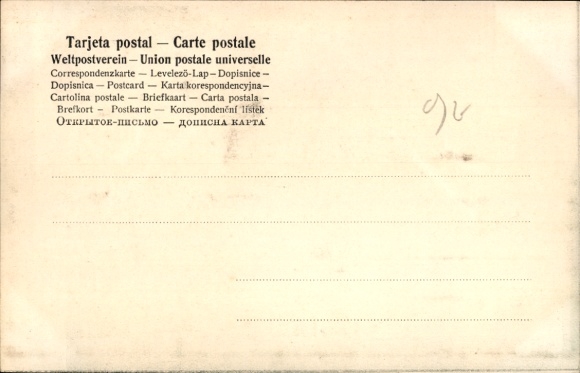 Tarjeta postal — Carte postale
Weltpostverein — Union postale universelle
Correspondenzkarte — Levelező-Lap — Dopisnice —
Dopisnica — Postcard — Karta korespondencyjna —
Cartolina postale — Briefkaart — Carta postala —
Brefkort — Postkarte — Korespondenční lístek
Открытое-письмо — дописна карта